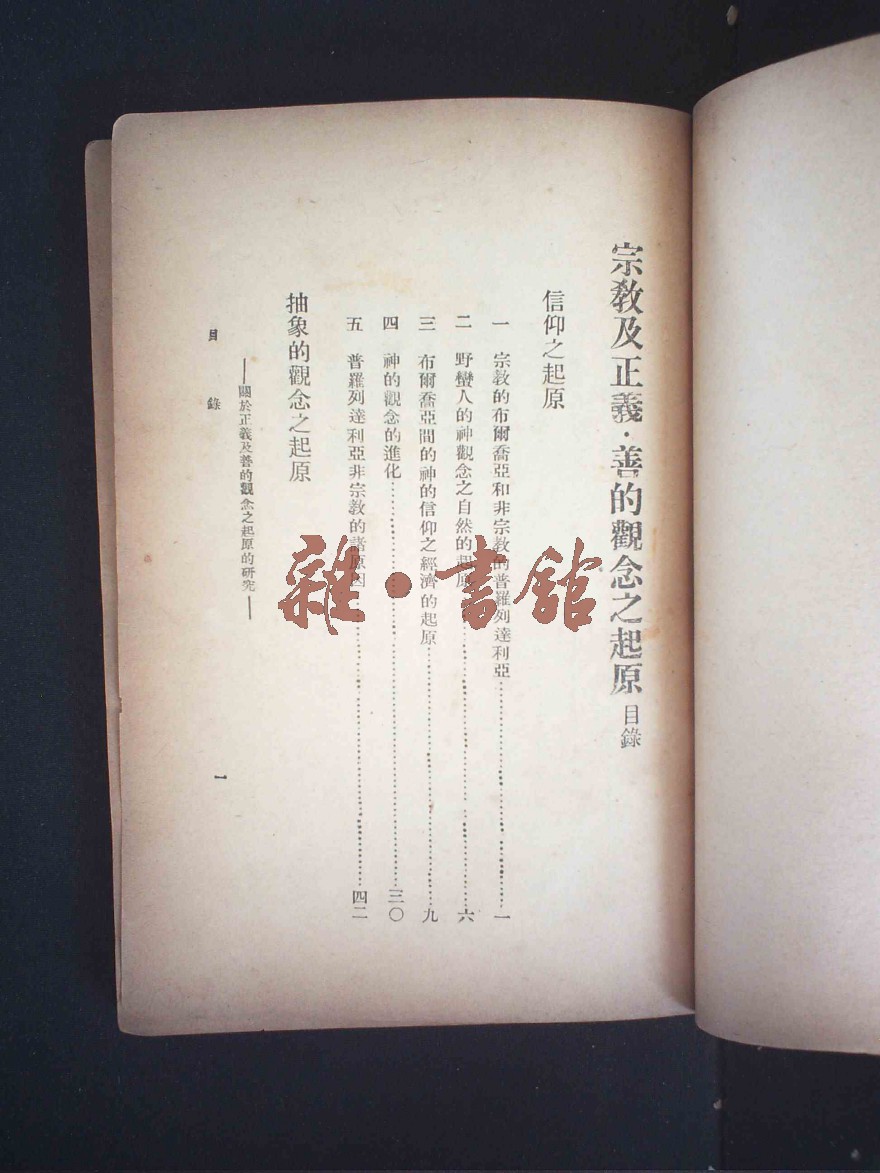 宗教及正義·善的觀念之起原 目錄
信仰之起原
一 宗教的布爾喬亞和非宗教的普羅列達利亞……一
二 野蠻人的神觀念之自然的起原……六
三 布爾喬亞間的神的信仰之經濟的起原……九
四 神的觀念的進化……三〇
五 普羅列達利亞非宗教的諸原因……四二
抽象的觀念之起原
——關於正義及善的觀念之起原的研究——
目錄
一
雜·書舘